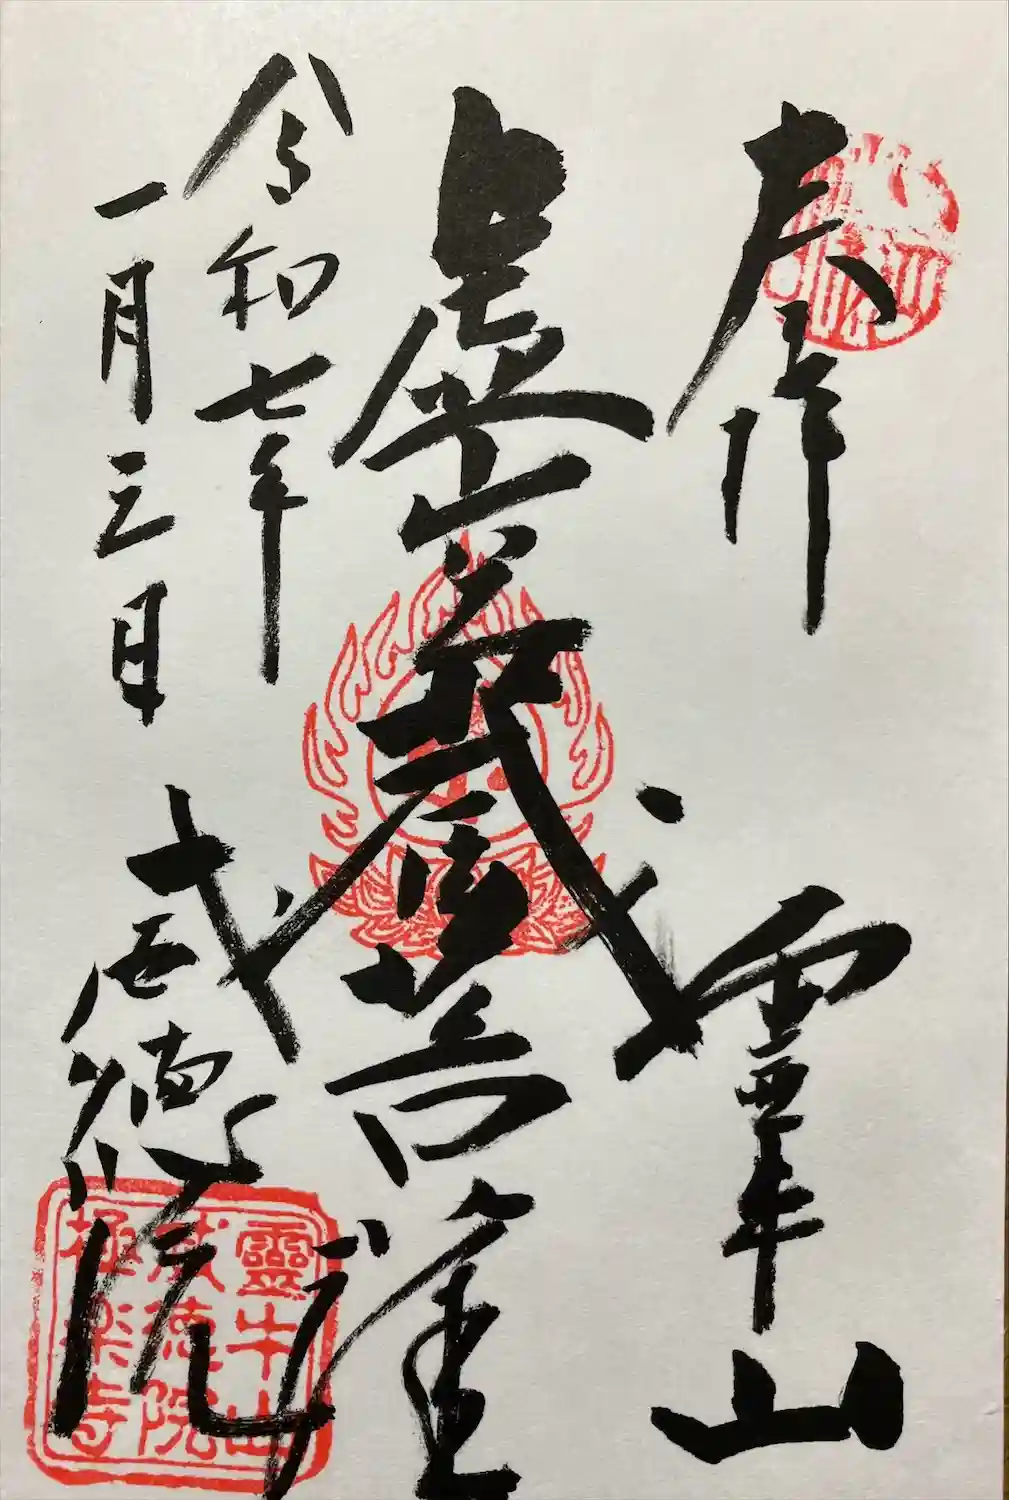 奉拝
靈牛山
虚空蔵菩薩
令和七年
一月三日
威徳院
靈牛山
威徳院
極楽寺